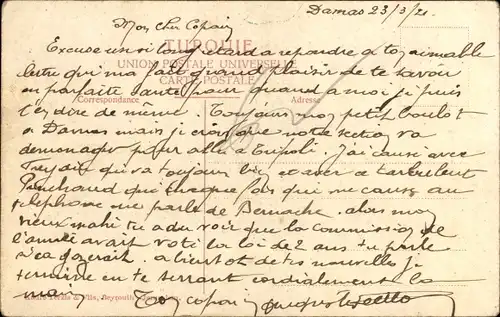 Damas 23/3/21.
Mon cher Copain
Excuse un si long retard a repondre a ton aimable
TURQUIE
lettre qui ma fait grand plaisir de te savoir
UNION POSTALE UNIVERSELLE
CARTE POSTALE
en parfaite sante pour quand a moi je puis
Correspondance Adresse
t'en dire de même. Toujours mon petit boulot
a Damas mais je crois que notre section va
demenager pour aller a Tripoli. J'ai causé avec
qui va toujours bien et avec ce turbulent
Panchaud qui chaque fois qui me cause au
telephone me parle de Bernache. alors mon
vieux tu a du voir que la commission de
l'armée avait voté la loi de 2 ans tu parle
si ça gazerait. a bientot de tes nouvelles je
termine en te serrant cordialement la
main Ton copain
Fils, Beyrouth